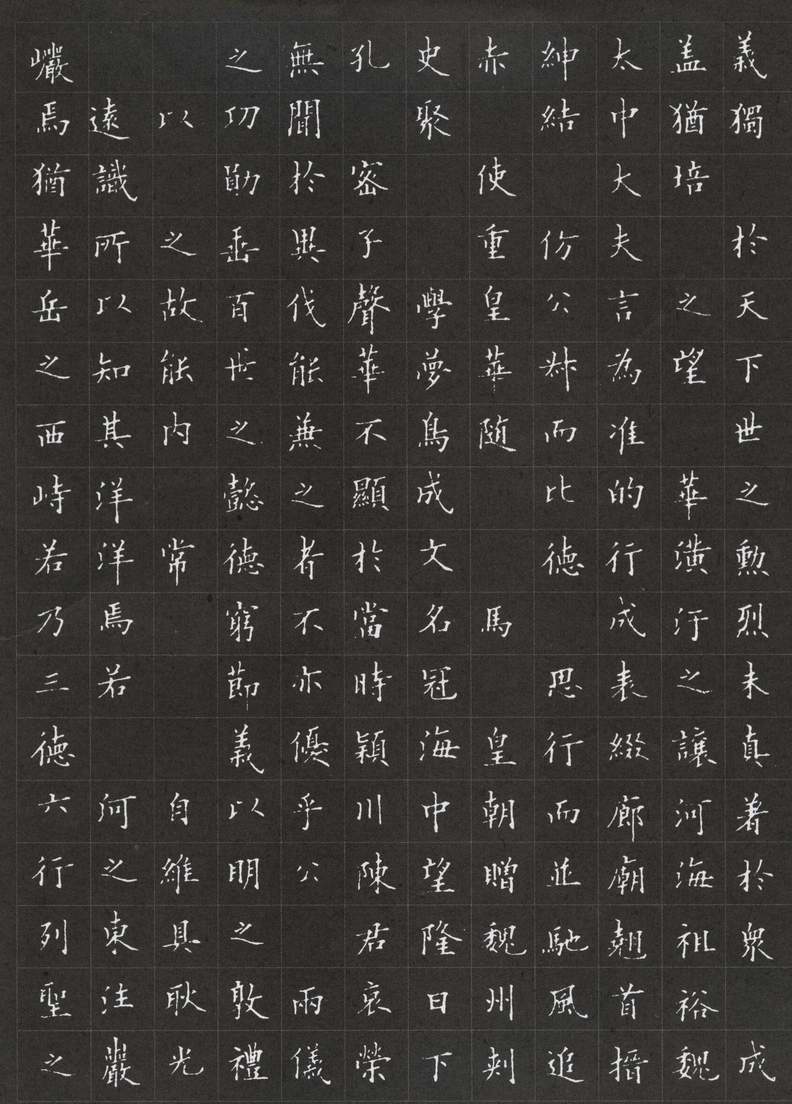 義獨於天下世之勲烈未真著於衆成
盖猶培之望華潢汙之讓河海祖裕魏
太中大夫言為准的行成表綴廊廟翹首搢
紳結仿公叔而比德思行而並馳風追
赤使重皇華随馬皇朝贈魏州刺
史聚學夢鳥成文名冠海中望隆日下
孔宓子聲華不顯於當時潁川陳君哀榮
無聞於異代能兼之者不亦優乎公兩儀
之功勛垂百世之懿德窮節義以明之敦禮
以之故能内常自維具耿光
遠識所以知其洋洋焉若河之東注巖
巗焉猶華岳之西峙若乃三德六行列聖之